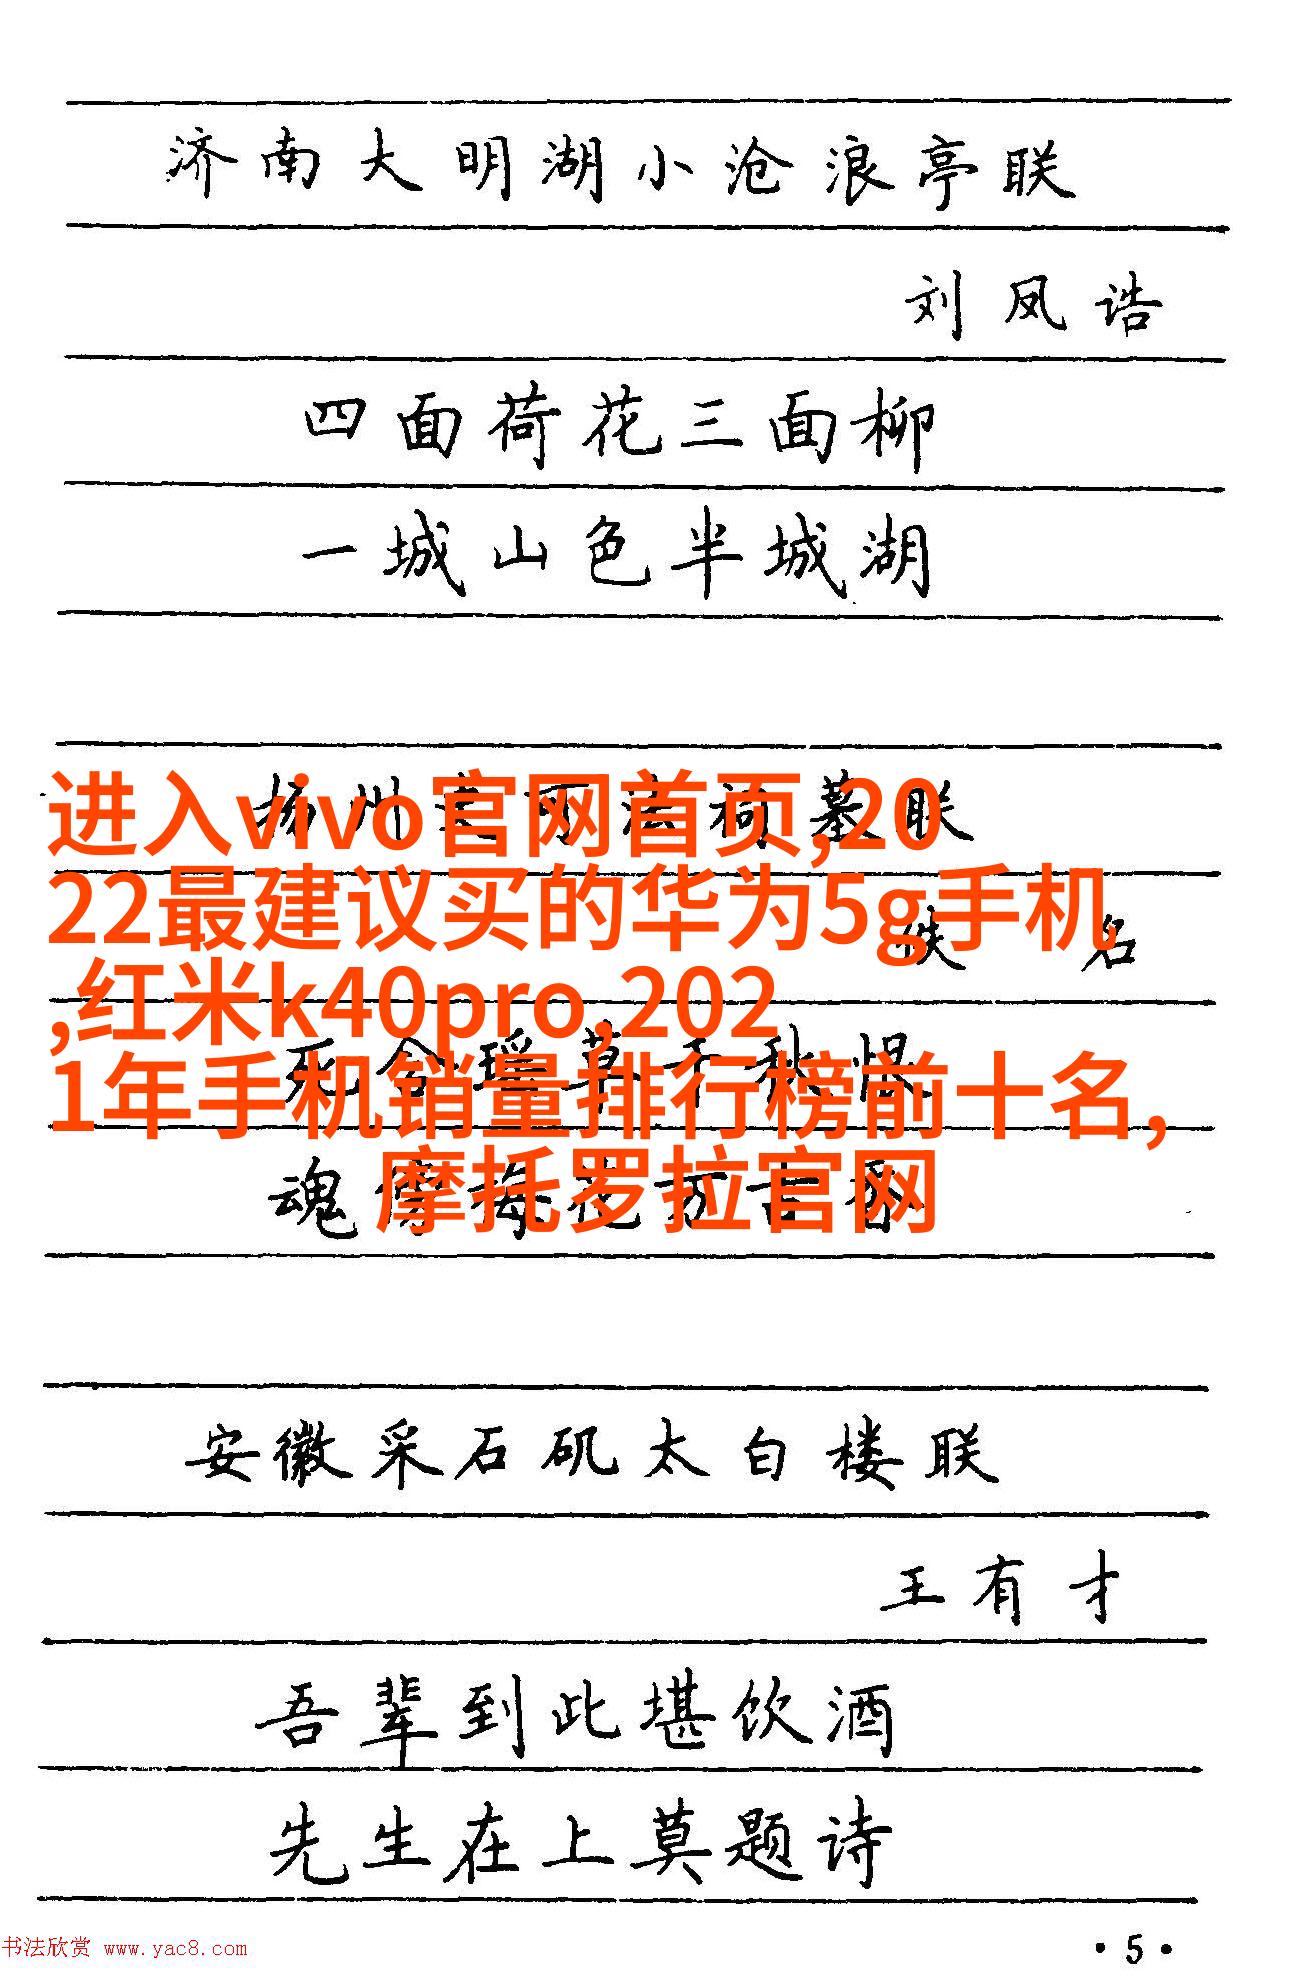 济南大明湖小沧浪亭联
刘凤诰
四面荷花三面柳
一城山色半城湖
扬州史可法祠墓联
佚名
死 瑶草千秋恨
魂傍梅花万古香
进入vivo官网首页,20
22最建议买的华为5g手机
,红米k40pro,202
1年手机销量排行榜前十名,
摩托罗拉官网
安徽采石矶太白楼联
王有才
吾辈到此堪饮酒
先生在上莫题诗
书法欣赏 www.yac8.com
·5·